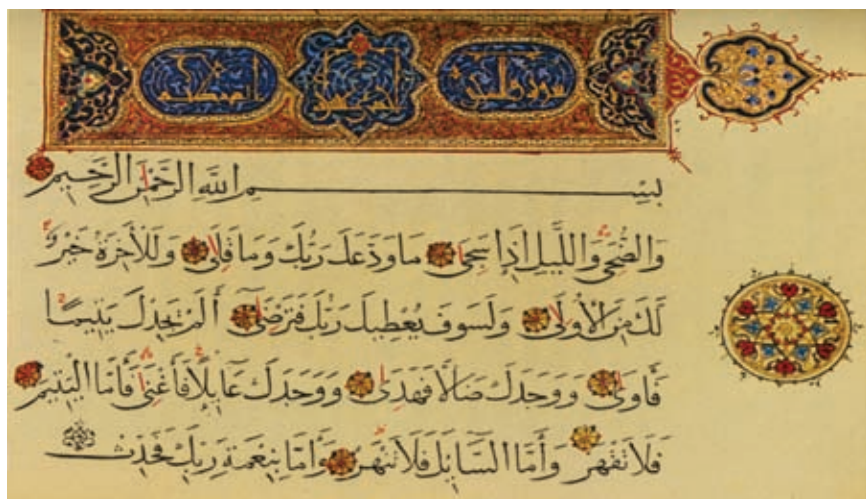 بِسْمِ اللَّهِ الرَّحْمَنِ الرَّحِيمِ
وَالضُّحَى وَاللَّيْلِ إِذَا سَجَى مَا وَدَّعَكَ رَبُّكَ وَمَا قَلَى وَلَلْآخِرَةُ خَيْرٌ
لَكَ مِنَ الْأُولَى وَلَسَوْفَ يُعْطِيكَ رَبُّكَ فَتَرْضَى أَلَمْ يَجِدْكَ يَتِيمًا
فَآوَى وَوَجَدَكَ ضَالًّا فَهَدَى وَوَجَدَكَ عَائِلًا فَأَغْنَى فَأَمَّا الْيَتِيمَ
فَلَا تَقْهَرْ وَأَمَّا السَّائِلَ فَلَا تَنْهَرْ وَأَمَّا بِنِعْمَةِ رَبِّكَ فَحَدِّثْ